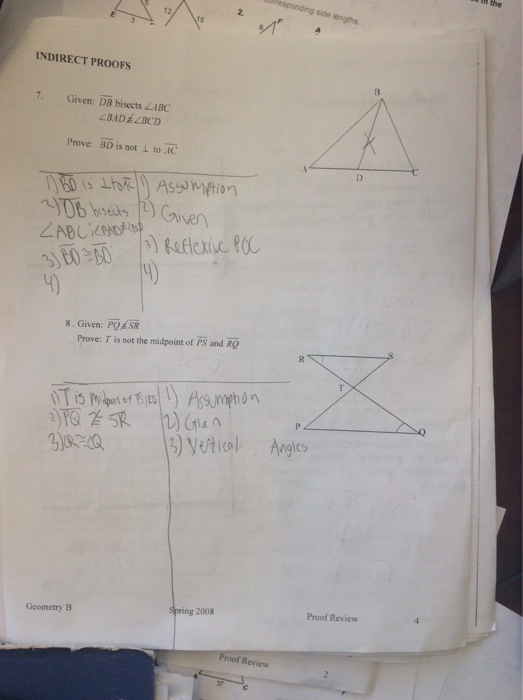 12
15
3
E
2.
orresponding side lengths
6
F
A
in the
INDIRECT PROOFS
7. Given: DB bisects ∠ABC
∠BAD ≇ ∠BCD
Prove: BD is not ⊥ to AC
B
A
D
C
1) BD is ⊥ to AC 1) Assumption
2) DB bisects 2) Given
∠ABC;
3) BD ≅ BD 3) Reflexive POC
4) 4)
8. Given: PQ ≇ SR
Prove: T is not the midpoint of PS and RQ
R
S
T
P
Q
1) T is Midpoint of 1) Assumption
2) PQ ≇ SR 2) Given
3) 3) Vertical Angles
Geometry B Spring 2008 Proof Review 4
Proof Review 2
37
C